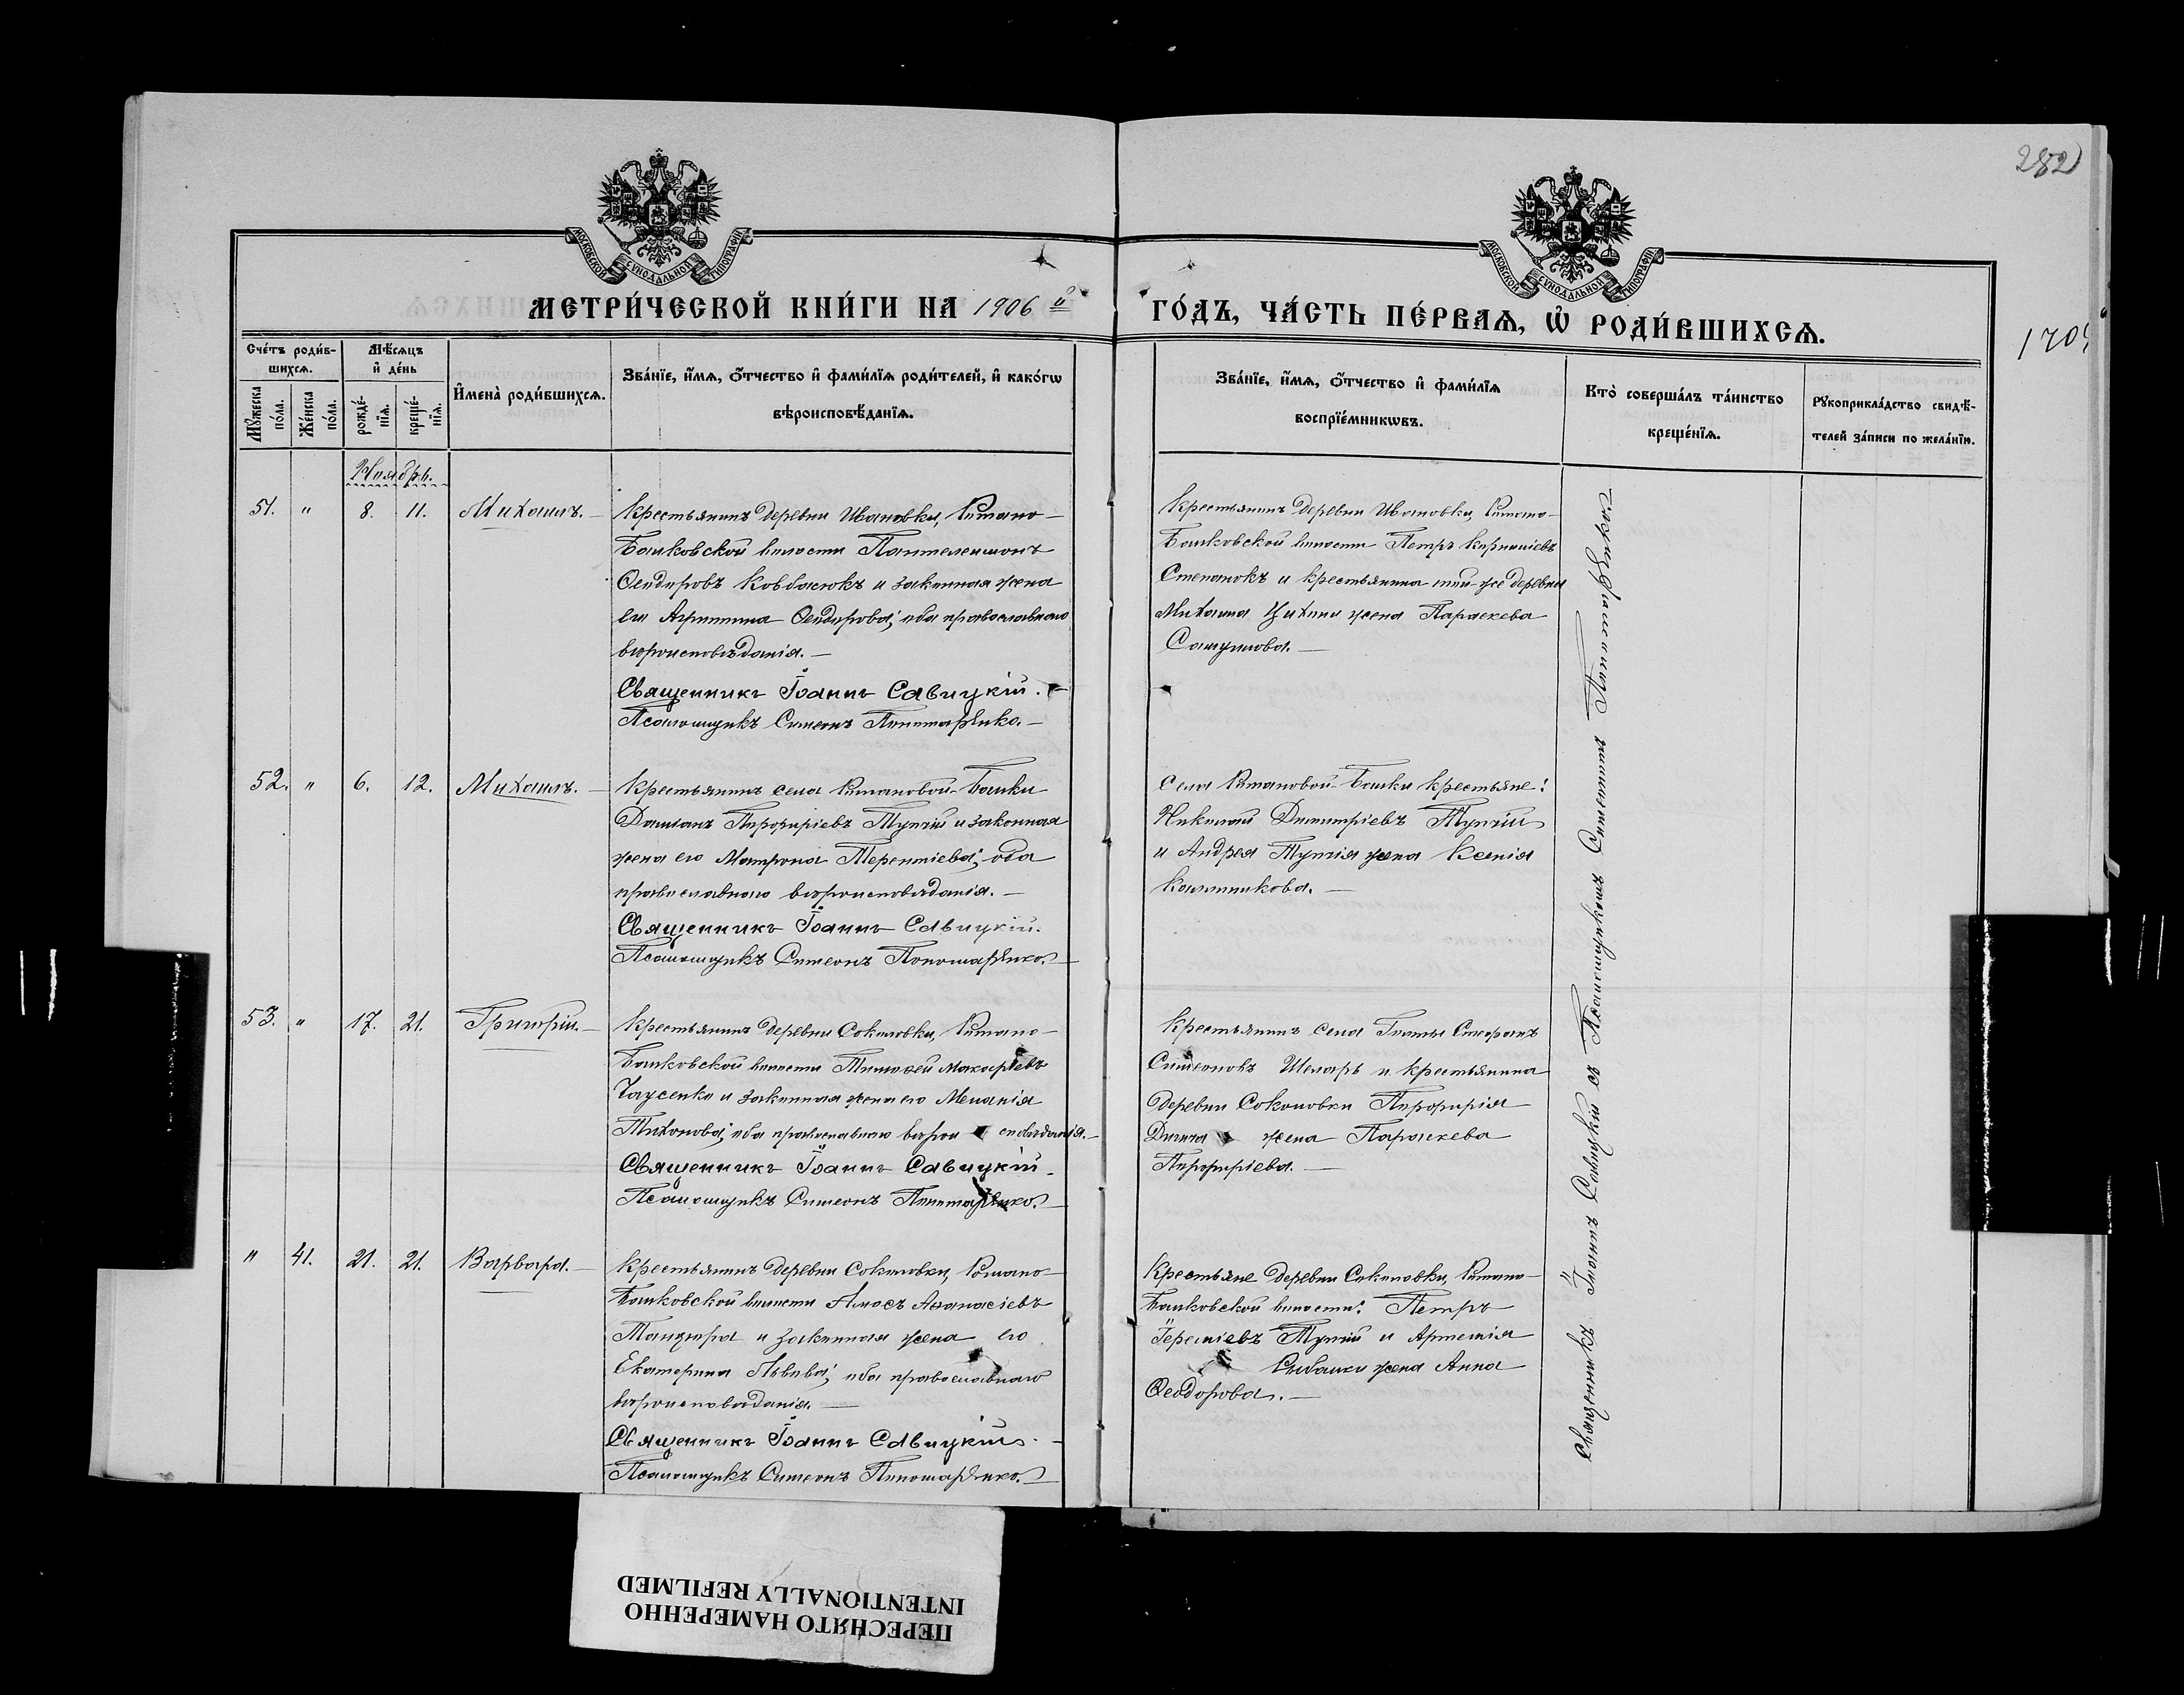 282
МОСКОВСКОЙ СѴНОДАЛЬНОЙ ТИПОГРАФІИ
МОСКОВСКОЙ СѴНОДАЛЬНОЙ ТИПОГРАФІИ
МЕТРИ́ЧЕСКОЙ КНИ́ГИ НА 1906 й
ГО́ДЪ, ЧА́СТЬ ПЕ́РВАѦ, Ѡ҆ РОДИ́ВШИХСѦ.
Сче́тъ роди́в-
шихсѧ.
Мꙋ́жеска по́ла.
Же́нска по́ла.
Мѣ́сѧцъ
и҆ де́нь
рожде́-
нїѧ.
креще́-
нїѧ.
И҆мена̀ роди́вшихсѧ.
Зва́нїе, и҆́мѧ, ѻ҆́тчество и҆ фами́лїѧ роди́телей, и҆ како́гѡ
вѣроисповѣ́данїѧ.
Зва́нїе, и҆́мѧ, ѻ҆́тчество и҆ фами́лїѧ
воспрїе́мникѡвъ.
Кто̀ соверша́лъ та́инство
креще́нїѧ.
Рꙋкоприкла́дство свидѣ́-
телей за́писи по жела́нїю.
Ноябрь.
51. " 8. 11. Михаилъ.
Крестьянинъ деревни Ивановки, Романо-
Балковской волости Пантелеимонъ
Ѳеодоровъ Ковбасюкъ и законная жена
его Агриппина Ѳеодорова; оба православнаго
вѣроисповѣданія.
Священникъ Іоаннъ Савицкій.
Псаломщикъ Симеонъ Пономаренко.
Крестьянинъ деревни Ивановки, Романо-
Балковской волости Петръ Корниліевъ
Степанокъ и крестьянина той-же деревни
Михаила жена Параскева
52. " 6. 12. Михаилъ.
Крестьянинъ села Романовой-Балки
Даміанъ Порфиріевъ Тупчій и законная
жена его Матрона Терентіева; оба
православнаго вѣроисповѣданія.
Священникъ Іоаннъ Савицкій.
Псаломщикъ Симеонъ Пономаренко.
Села Романовой-Балки крестьяне:
Николай Димитріевъ Тупчій
и Андрея Тупчія жена Ксенія
Каллиникова.
53. " 17. 21. Григорій.
Крестьянинъ деревни Соколовки, Романо-
Балковской волости Тимоѳей Макаріевъ
Чаусенко и законная жена его Меланія
Тихонова; оба православнаго вѣроисповѣданія.
Священникъ Іоаннъ Савицкій.
Псаломщикъ Симеонъ Пономаренко.
Крестьянинъ села
Симеоновъ и крестьянина
деревни Соколовки Порфирія
жена Параскева
Порфиріева.
" 41. 21. 21. Варвара.
Крестьянинъ деревни Соколовки, Романо-
Балковской волости Амосъ Аѳанасіевъ
Танцюра и законная жена его
Екатерина Львова; оба православнаго
вѣроисповѣданія.
Священникъ Іоаннъ Савицкій.
Псаломщикъ Симеонъ Пономаренко.
Крестьяне деревни Соколовки, Романо-
Балковской волости: Петръ
Іереміевъ Тупчій и Артемія
жена Анна
Ѳеодорова.
Священникъ Іоаннъ Савицкій съ Псаломщикомъ Симеономъ Пономаренко.
ПЕРЕСНЯТО НАМЕРЕННО
INTENTIONALLY REFILMED